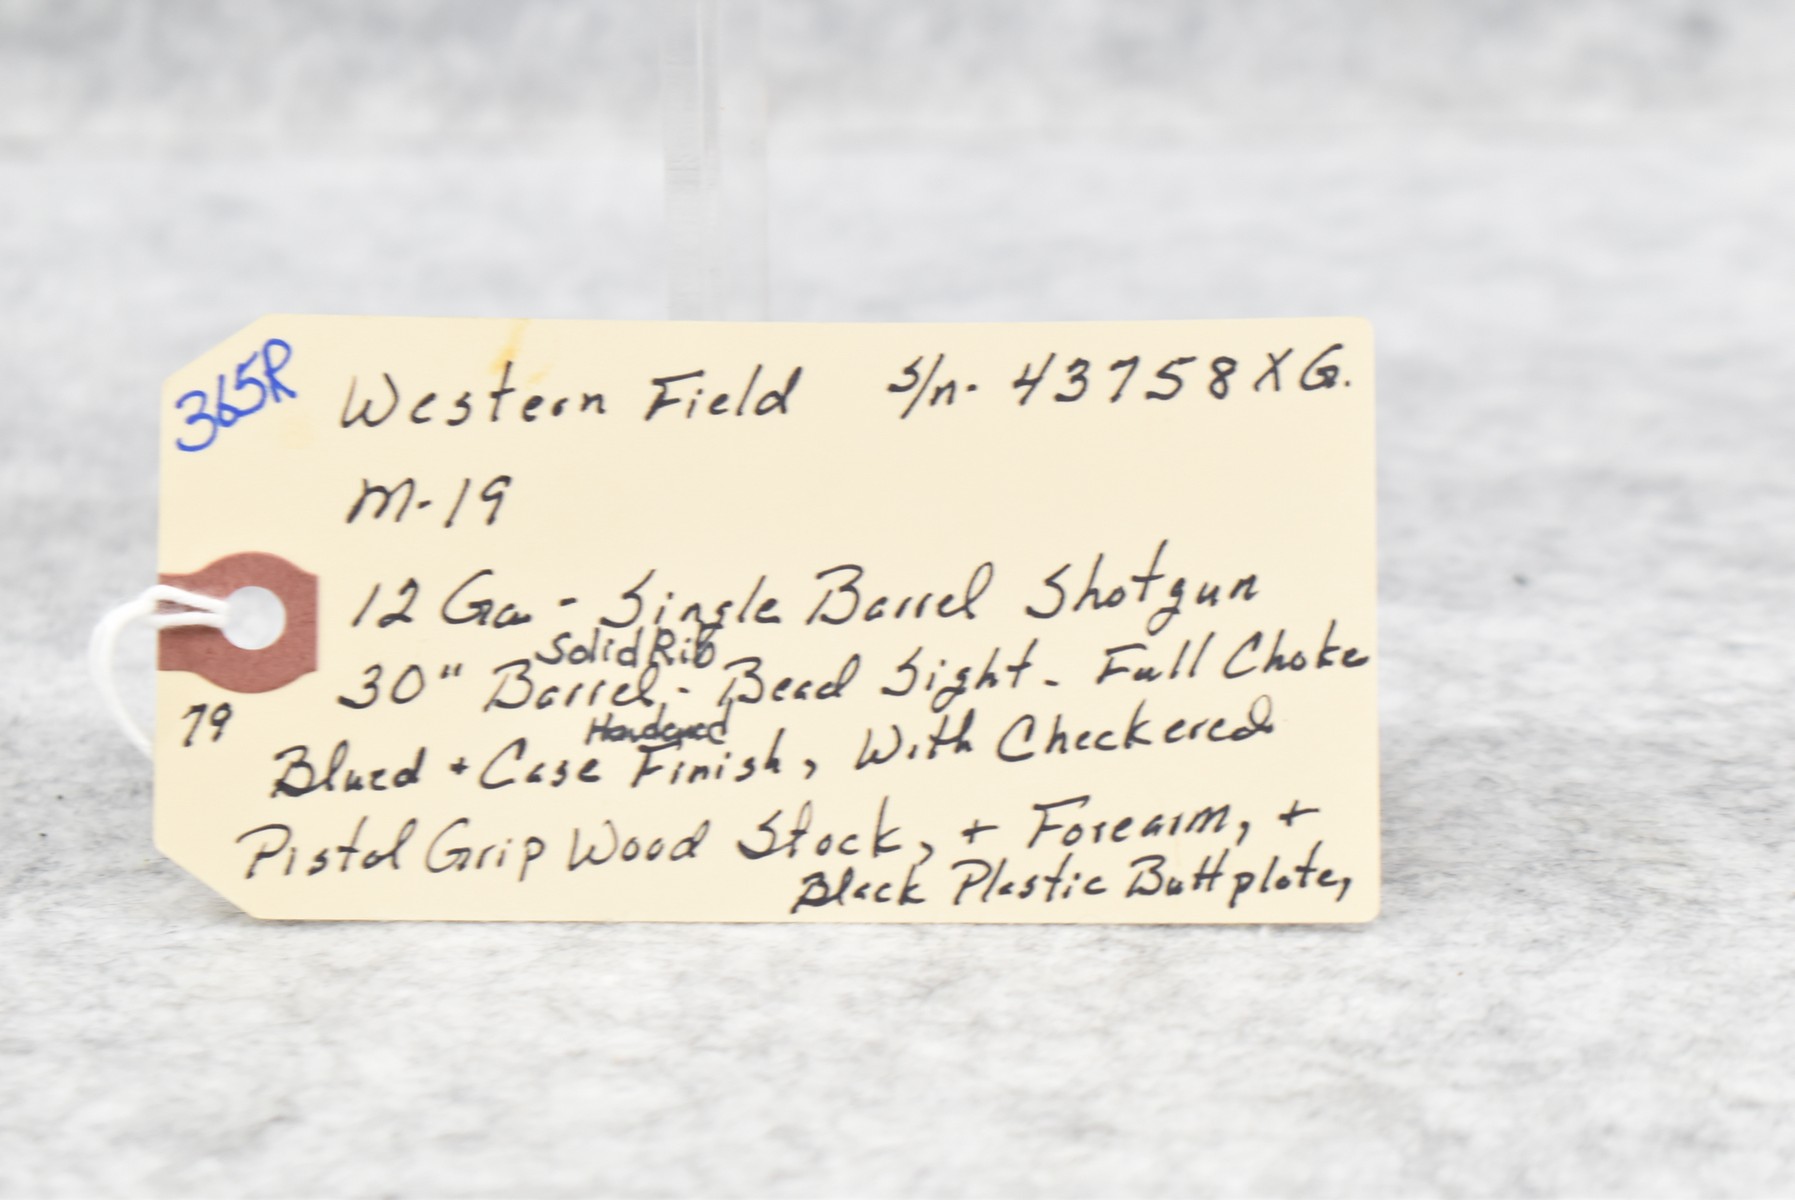 365R
Western Field s/n- 43758XG.
M-19
12 Ga - Single Barrel Shotgun
Solid Rib
30" Barrel - Bead Sight - Full Choke
79
Hardened
Blued + Case Finish, With Checkered
Pistol Grip Wood Stock, + Forearm, +
Black Plastic Buttplate,